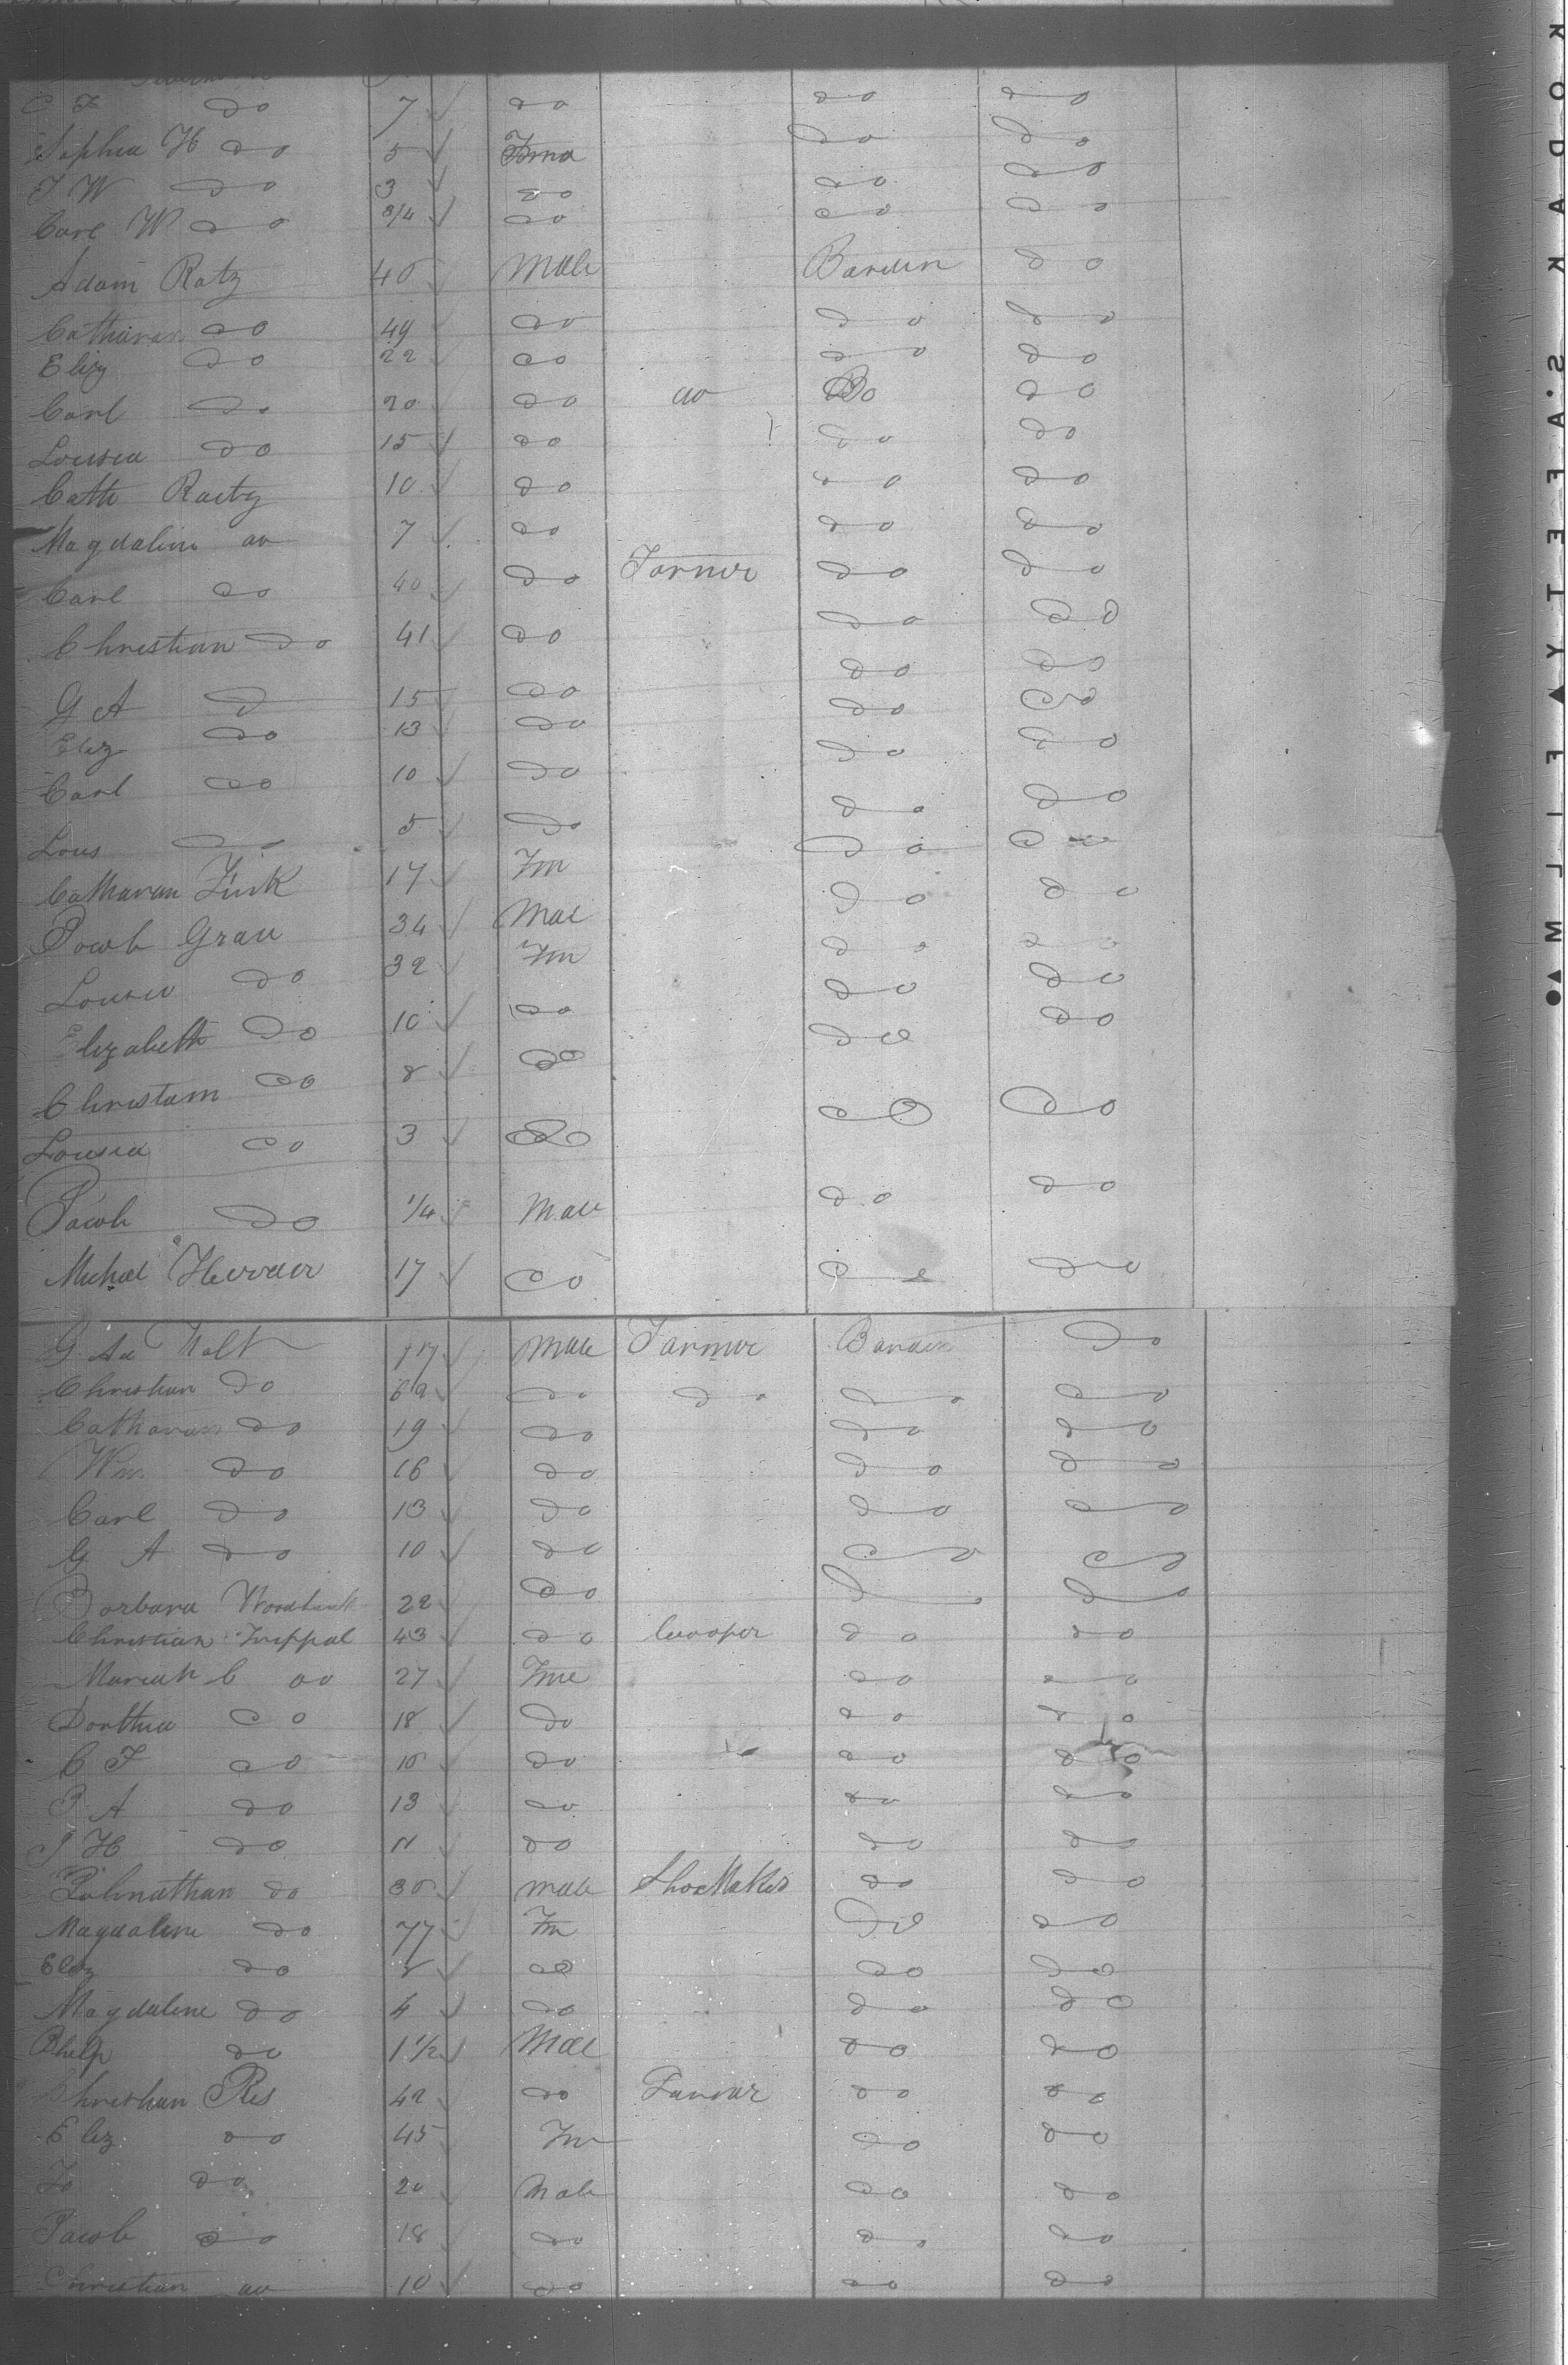 C F do 7 do do do
Sophia H do 5 Fma do do
F W do 3 do do do
Carl W do 3/4 do do do
Adam Ratz 45 Male Barden do
Catharan do 49 do do do
Eliz do 22 do do do
Carl do 20 do do Do do
Lousea do 15 do do do
Cath Raitz 10 do do do
Magdaline do 7 do do do
Carl do 40 do Farmer do do
Christian do 41 do do do
G A do 15 do do do
Eliz do 13 do do do
Carl do 10 do do do
Lous do 5 do do do
Catharan Fink 17 Fm do do
Jacob Grau 34 Mal do do
Lousia do 32 Fm do do
Elizabeth do 10 do do do
Christain do 8 do do do
Lousia do 3 do do do
Jacob do 1/4 Male do do
Michael 17 do do do
G Ad Male Farmer Barden do
Christian do 62 do do do do
Catharan do 19 do do do
Wm. do 16 do do do
Carl do 13 do do do
G A do 10 do do do
Barbara 22 do do do
Christian 43 do Cooper do do
Mariah C do 27 Fme do do
Dorthia do 18 do do do
C F do 15 do do do
J A do 13 do do do
J H do 11 do do do
Johnathan do 35 male Shoe Maker do do
Magdaline do 77 Fm do do
Eliz do 8 do do do
Magdaline do 4 do do do
Phelp do 1 1/2 Mal do do
Christian Ries 42 do Farmer do do
Eliz do 45 Fm do do
Jo do 20 Male do do
Jacob do 18 do do do
Christian do 10 do do do
KODAK S.A.F.E.T.Y. FILM